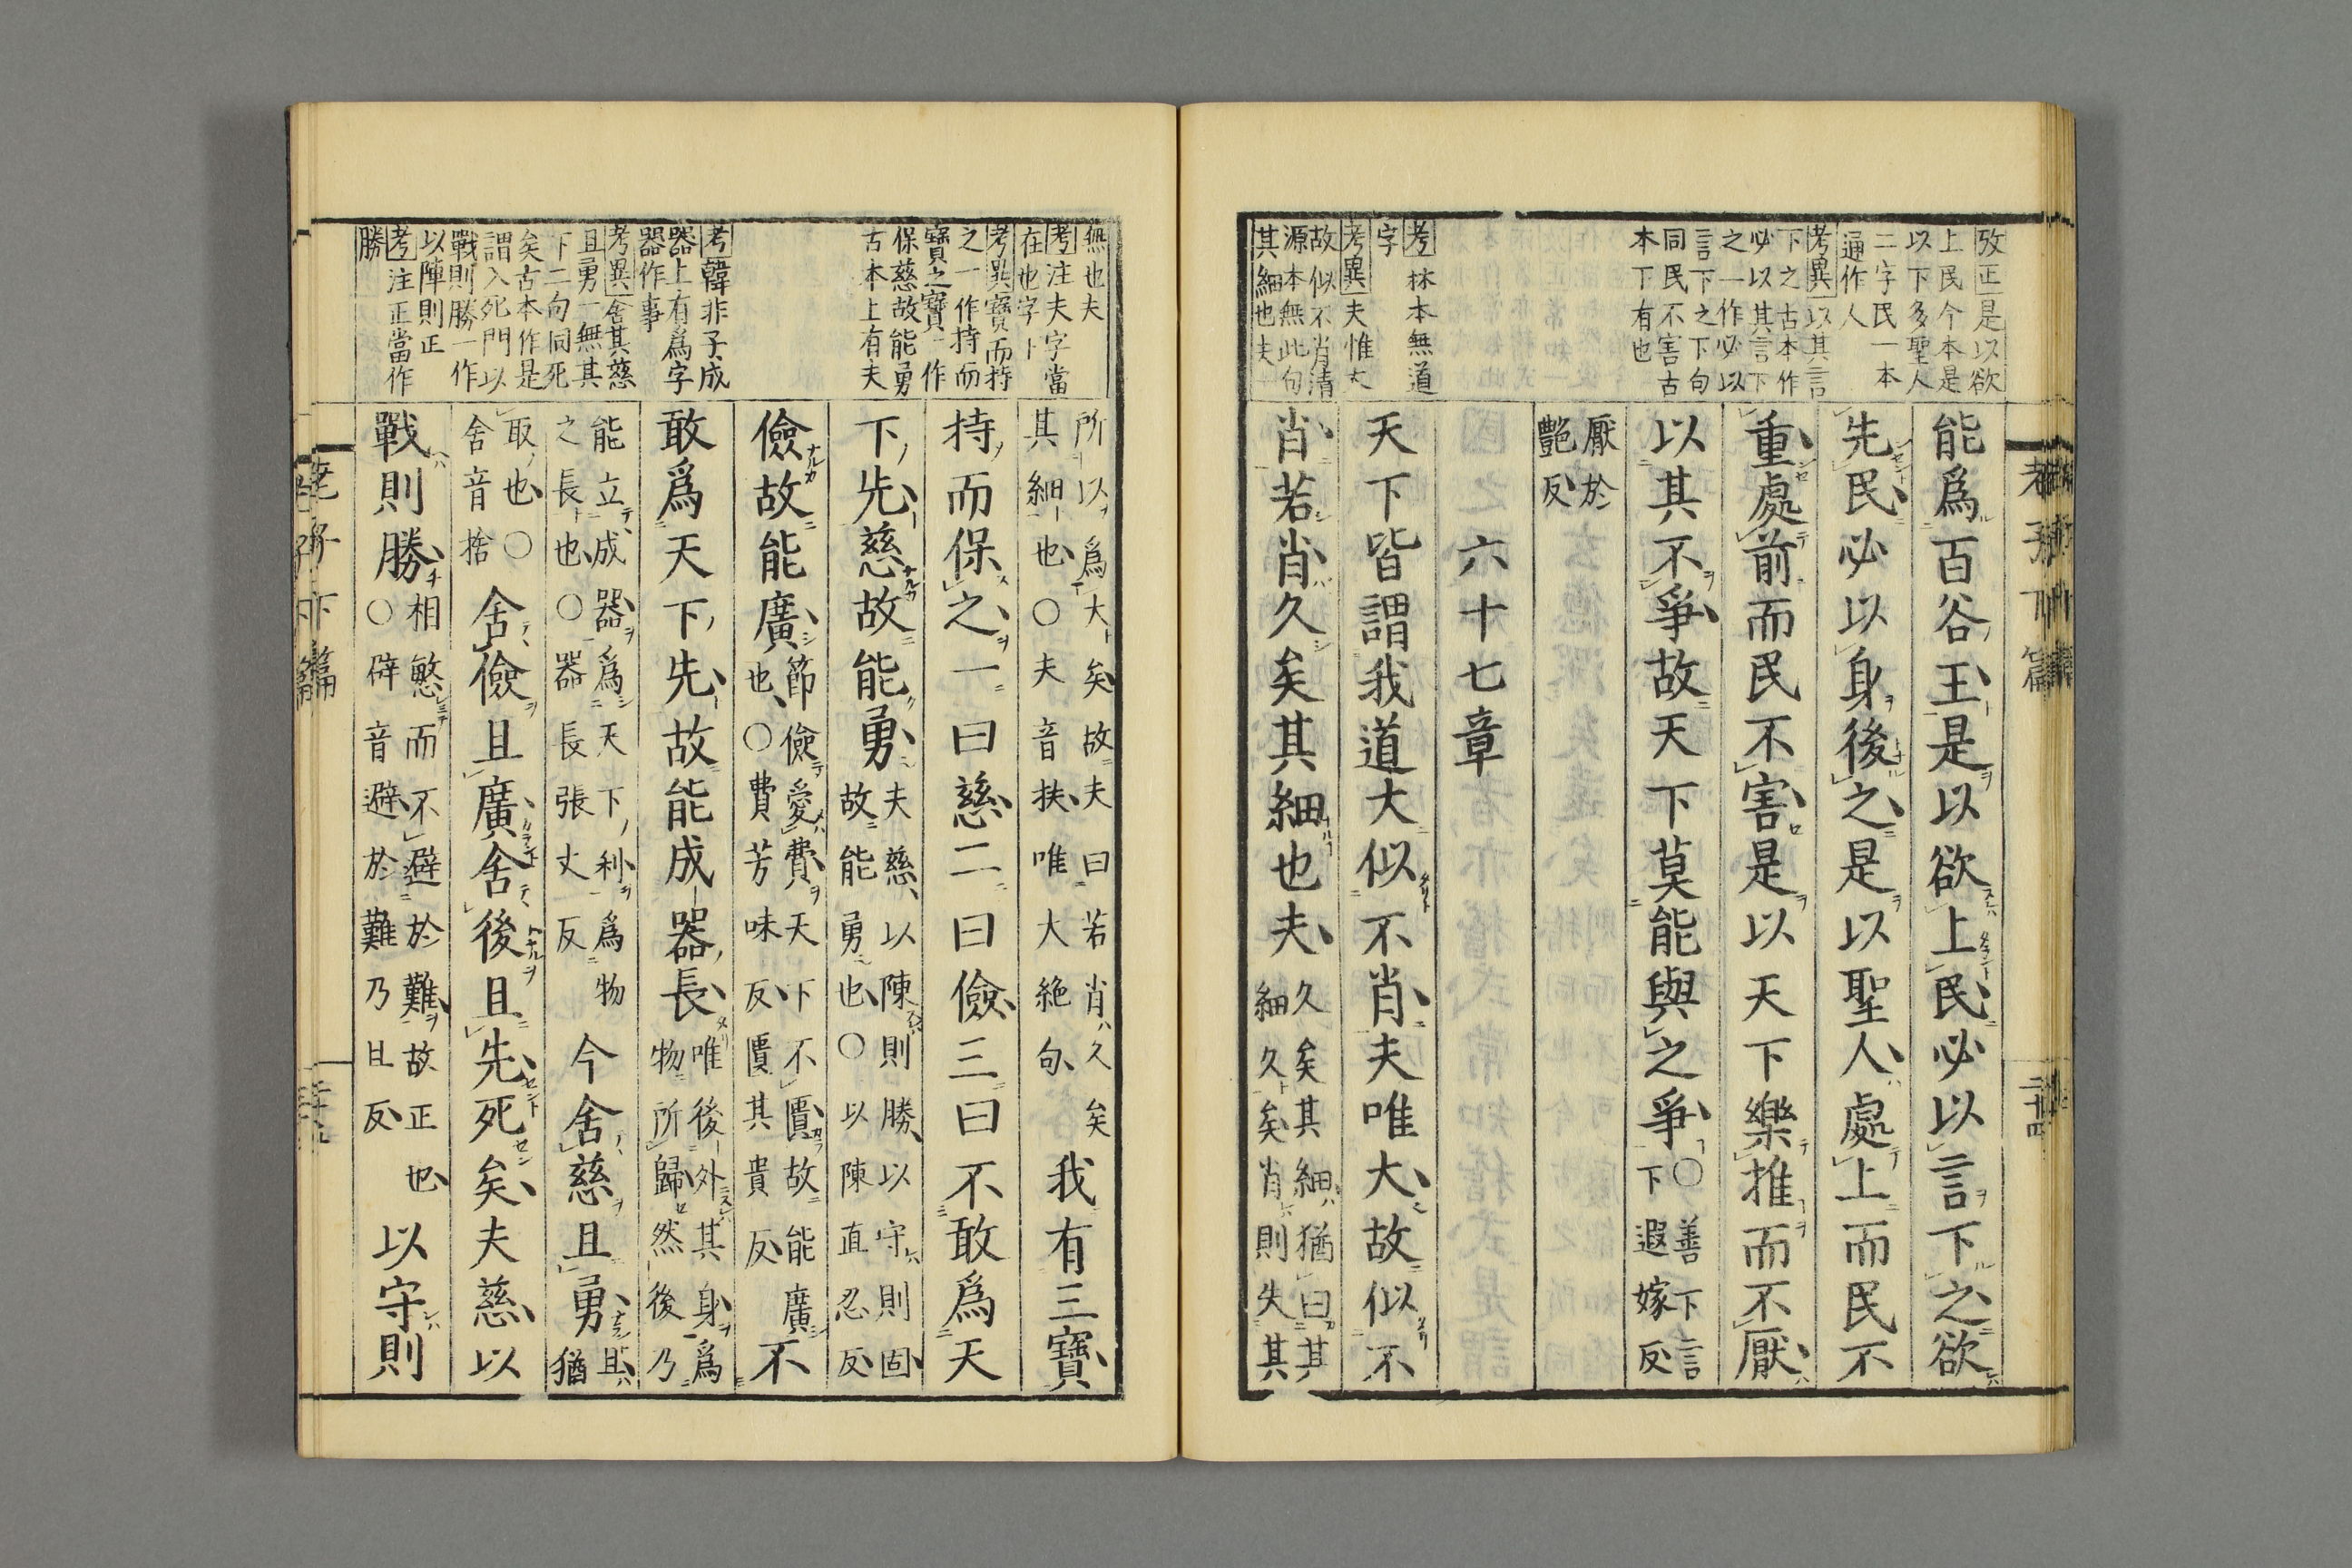 攷正是以欲
上民今本是
以下多聖人
二字民一本
通作人
考異以其言
下之古本作
必以其言下
之一作必以
言下之下句
同民不害古
本下有也
考林本無道
字
考異夫惟大
故似不肖清
源本無此句
其細也夫一
能爲百谷王是以欲上民必以言下之欲
先民必以身後之是以聖人處上而民不
重處前而民不害是以天下樂推而不厭
以其不爭故天下莫能與之爭
○善下言
下遐嫁反
厭於
艷反
六十七章
天下皆謂我道大似不肖夫唯大故似不
肖若肖久矣其細也夫
久矣其細猶曰其
細久矣肖則失其
老子下篇
無也夫
考注夫字當
在也字下
考異寶而持
之一作持而
寶之寶一作
保慈故能勇
古本上有夫
考韓非子成
器上有爲字
器作事
考異舍其慈
且勇一無其
下二句同死
矣古本作是
謂入死門以
戰則勝一作
以陣則正
考注正當作
勝
所以爲大矣故夫曰若肖久矣
其細也○夫音扶唯大絶句
我有三寶
持而保之一曰慈二曰儉三曰不敢爲天
下先慈故能勇
夫慈以陳則勝以守則固
故能勇也○以陳直忍反
儉故能廣
節儉愛費天下不匱故能廣
也○費芳味反匱其貴反
不
敢爲天下先故能成器長
唯後外其身爲
物所歸然後乃
能立成器爲天下利爲物
之長也○器長張丈反
今舍慈且勇
且猶
取也○
舍音捨
舍儉且廣舍後且先死矣夫慈以
戰則勝
相慜而不避於難故正也
○辟音避於難乃旦反
以守則
老子下篇